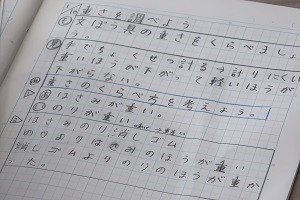 重さを調べよう
文ぼう具の重さをくらべましょ
う。
重いほうが下がって軽いほうが
下がらない。
重さのくらべ方を考えよう。
はさみが重い。
のりが重い
はさみのり消しゴム
のりよりはさみのほうが重い
消しゴムよりのりのほうが重か
た。